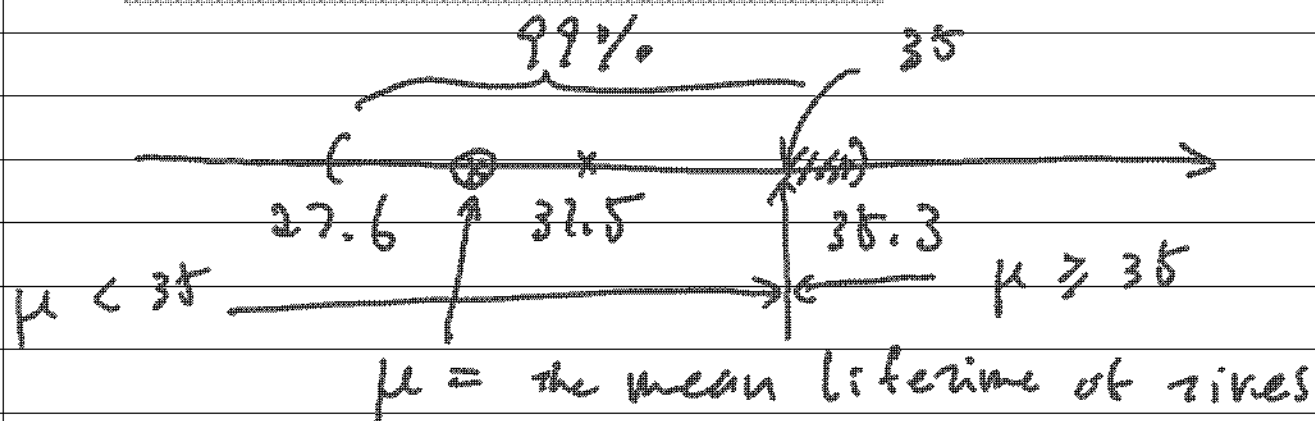 99% 35
27.6 31.5 35.3
μ < 35 μ ≥ 35
μ = the mean lifetime of tires